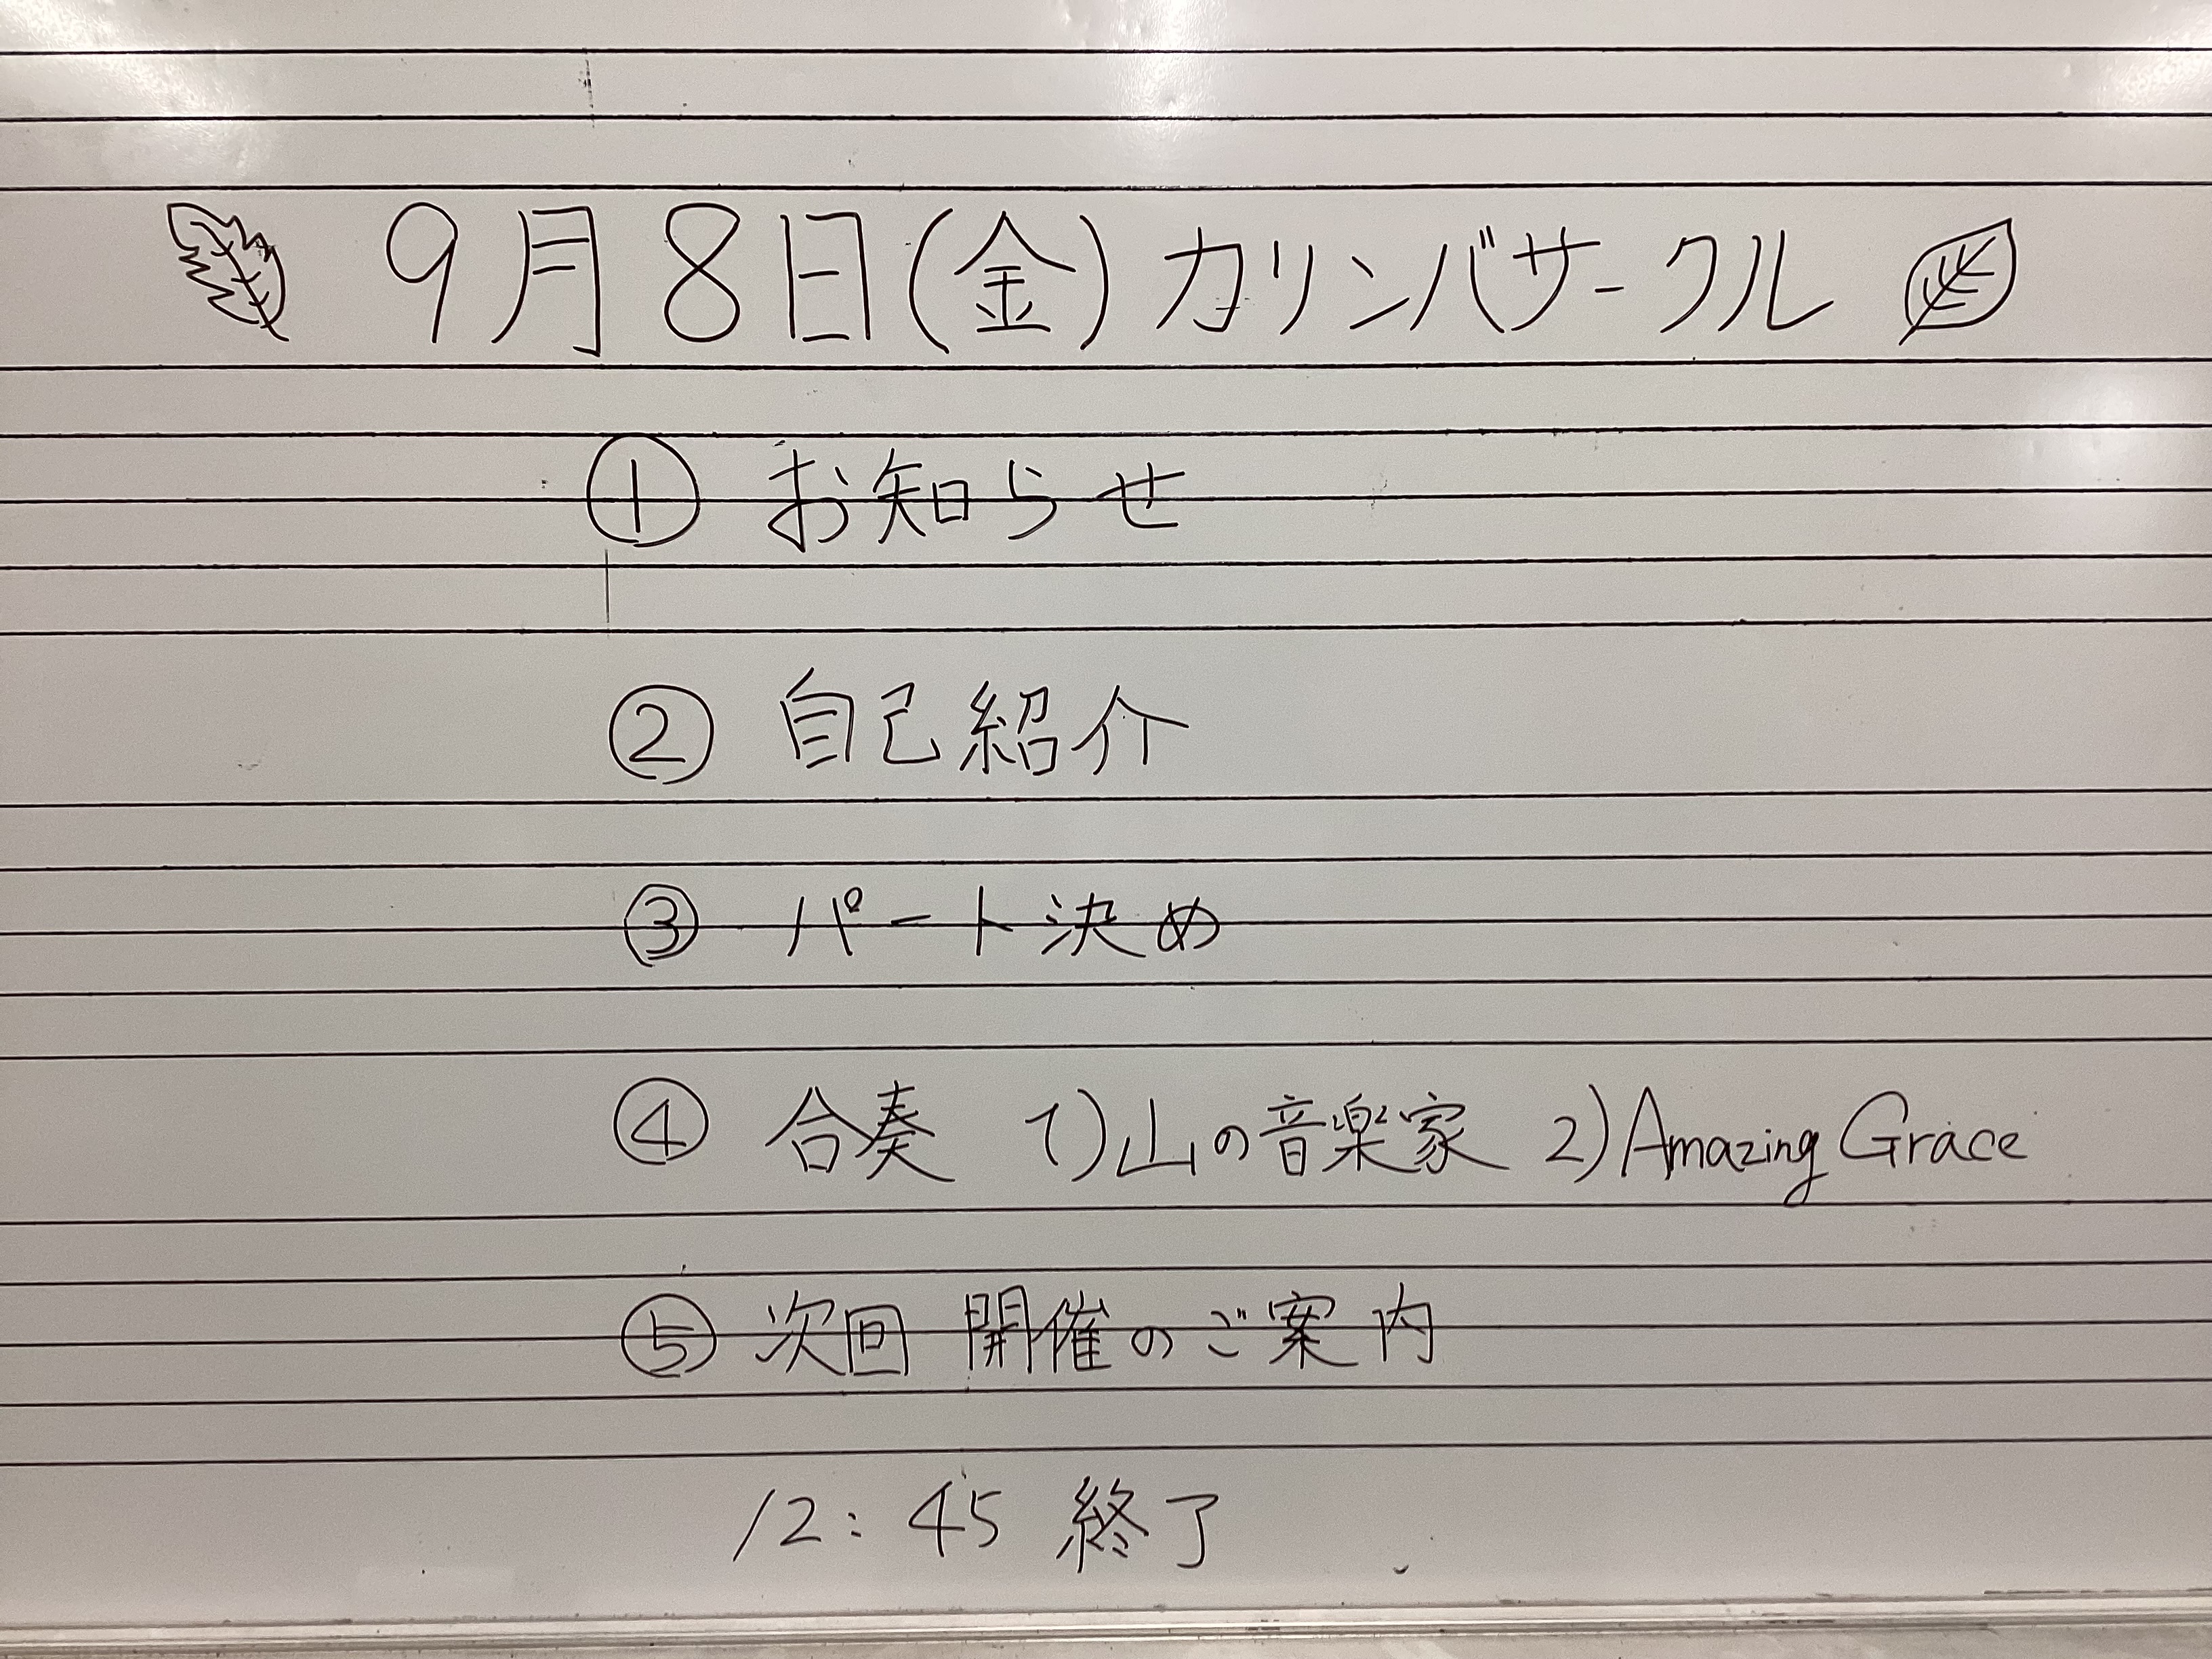 9月8日(金)カリンバサークル
① お知らせ
② 自己紹介
③ パート決め
④ 合奏 1)山の音楽家 2)Amazing Grace
⑤ 次回 開催のご案内
12:45 終了